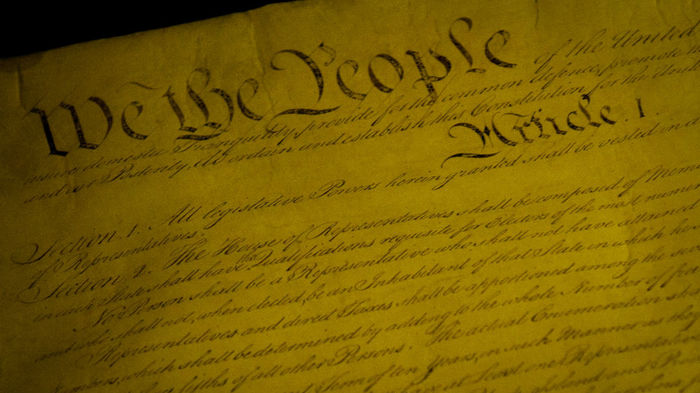 We the People of the United
insure domestic Tranquility, provide for the common defence, promote
and our Posterity, do ordain and establish this Constitution for the United
Article. I.
Section. 1. All legislative Powers herein granted shall be vested in a
of Representatives.
Section. 2. The House of Representatives shall be composed of Mem
in each State shall have the Qualifications requisite for Electors of the most numer
No Person shall be a Representative who shall not have attained
and who shall not, when elected, be an Inhabitant of that State in which he
Representatives and direct Taxes shall be apportioned among the se
mbers, which shall be determined by adding to the whole Number of free
fifths of all other Persons. The actual Enumeration sha
Term of ten Years, in such Manner as they
have at Least one Representative